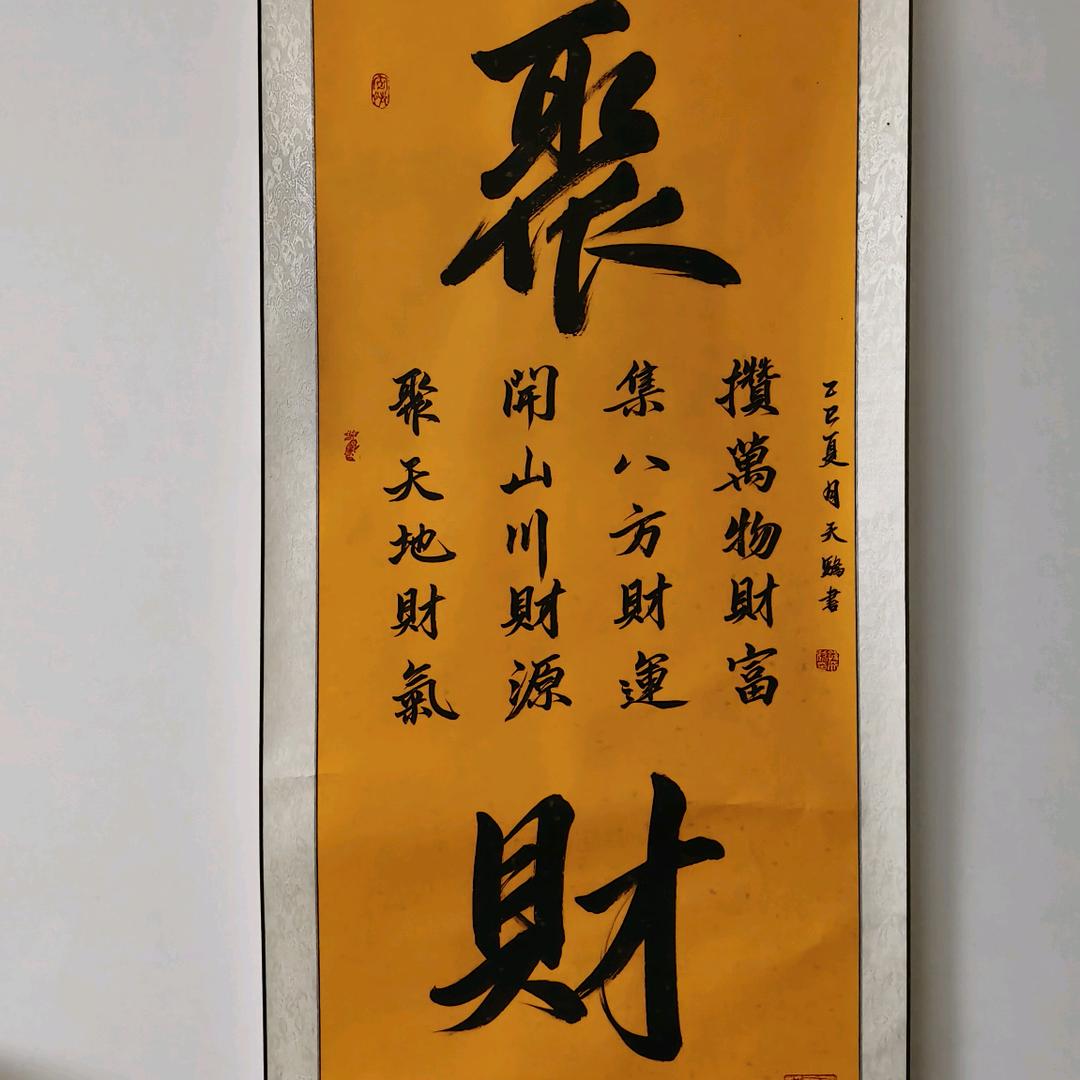 聚
聚天地財氣
開山川財源
集八方財運
攢萬物財富
乙巳夏月天驕書
財